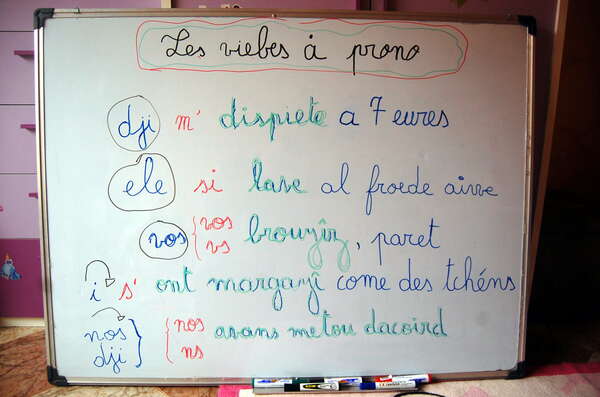 Les viebes à prono
dji m' dispiete a 7 eures
ele si lave al froede aiwe
vos vos vs brouyîz, paret
i s' ont margayî come des tchéns
nos dji nos ns avans metou d'acoird